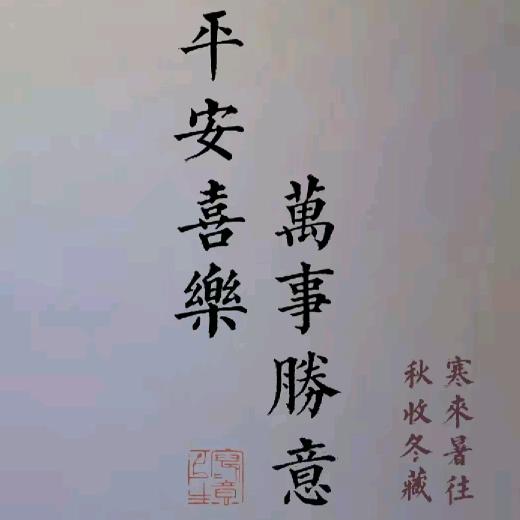 寒來暑往
秋收冬藏
萬事勝意
平安喜樂